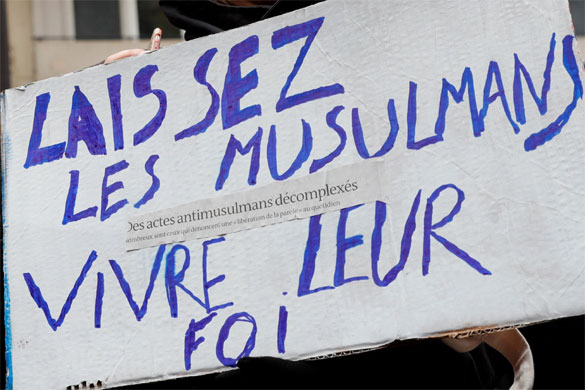 LAISSEZ
LES MUSULMANS
Des actes antimusulmans décomplexés
nombreux sont ceux qui dénoncent une « libération de la parole » au quotidien
VIVRE LEUR
FOI